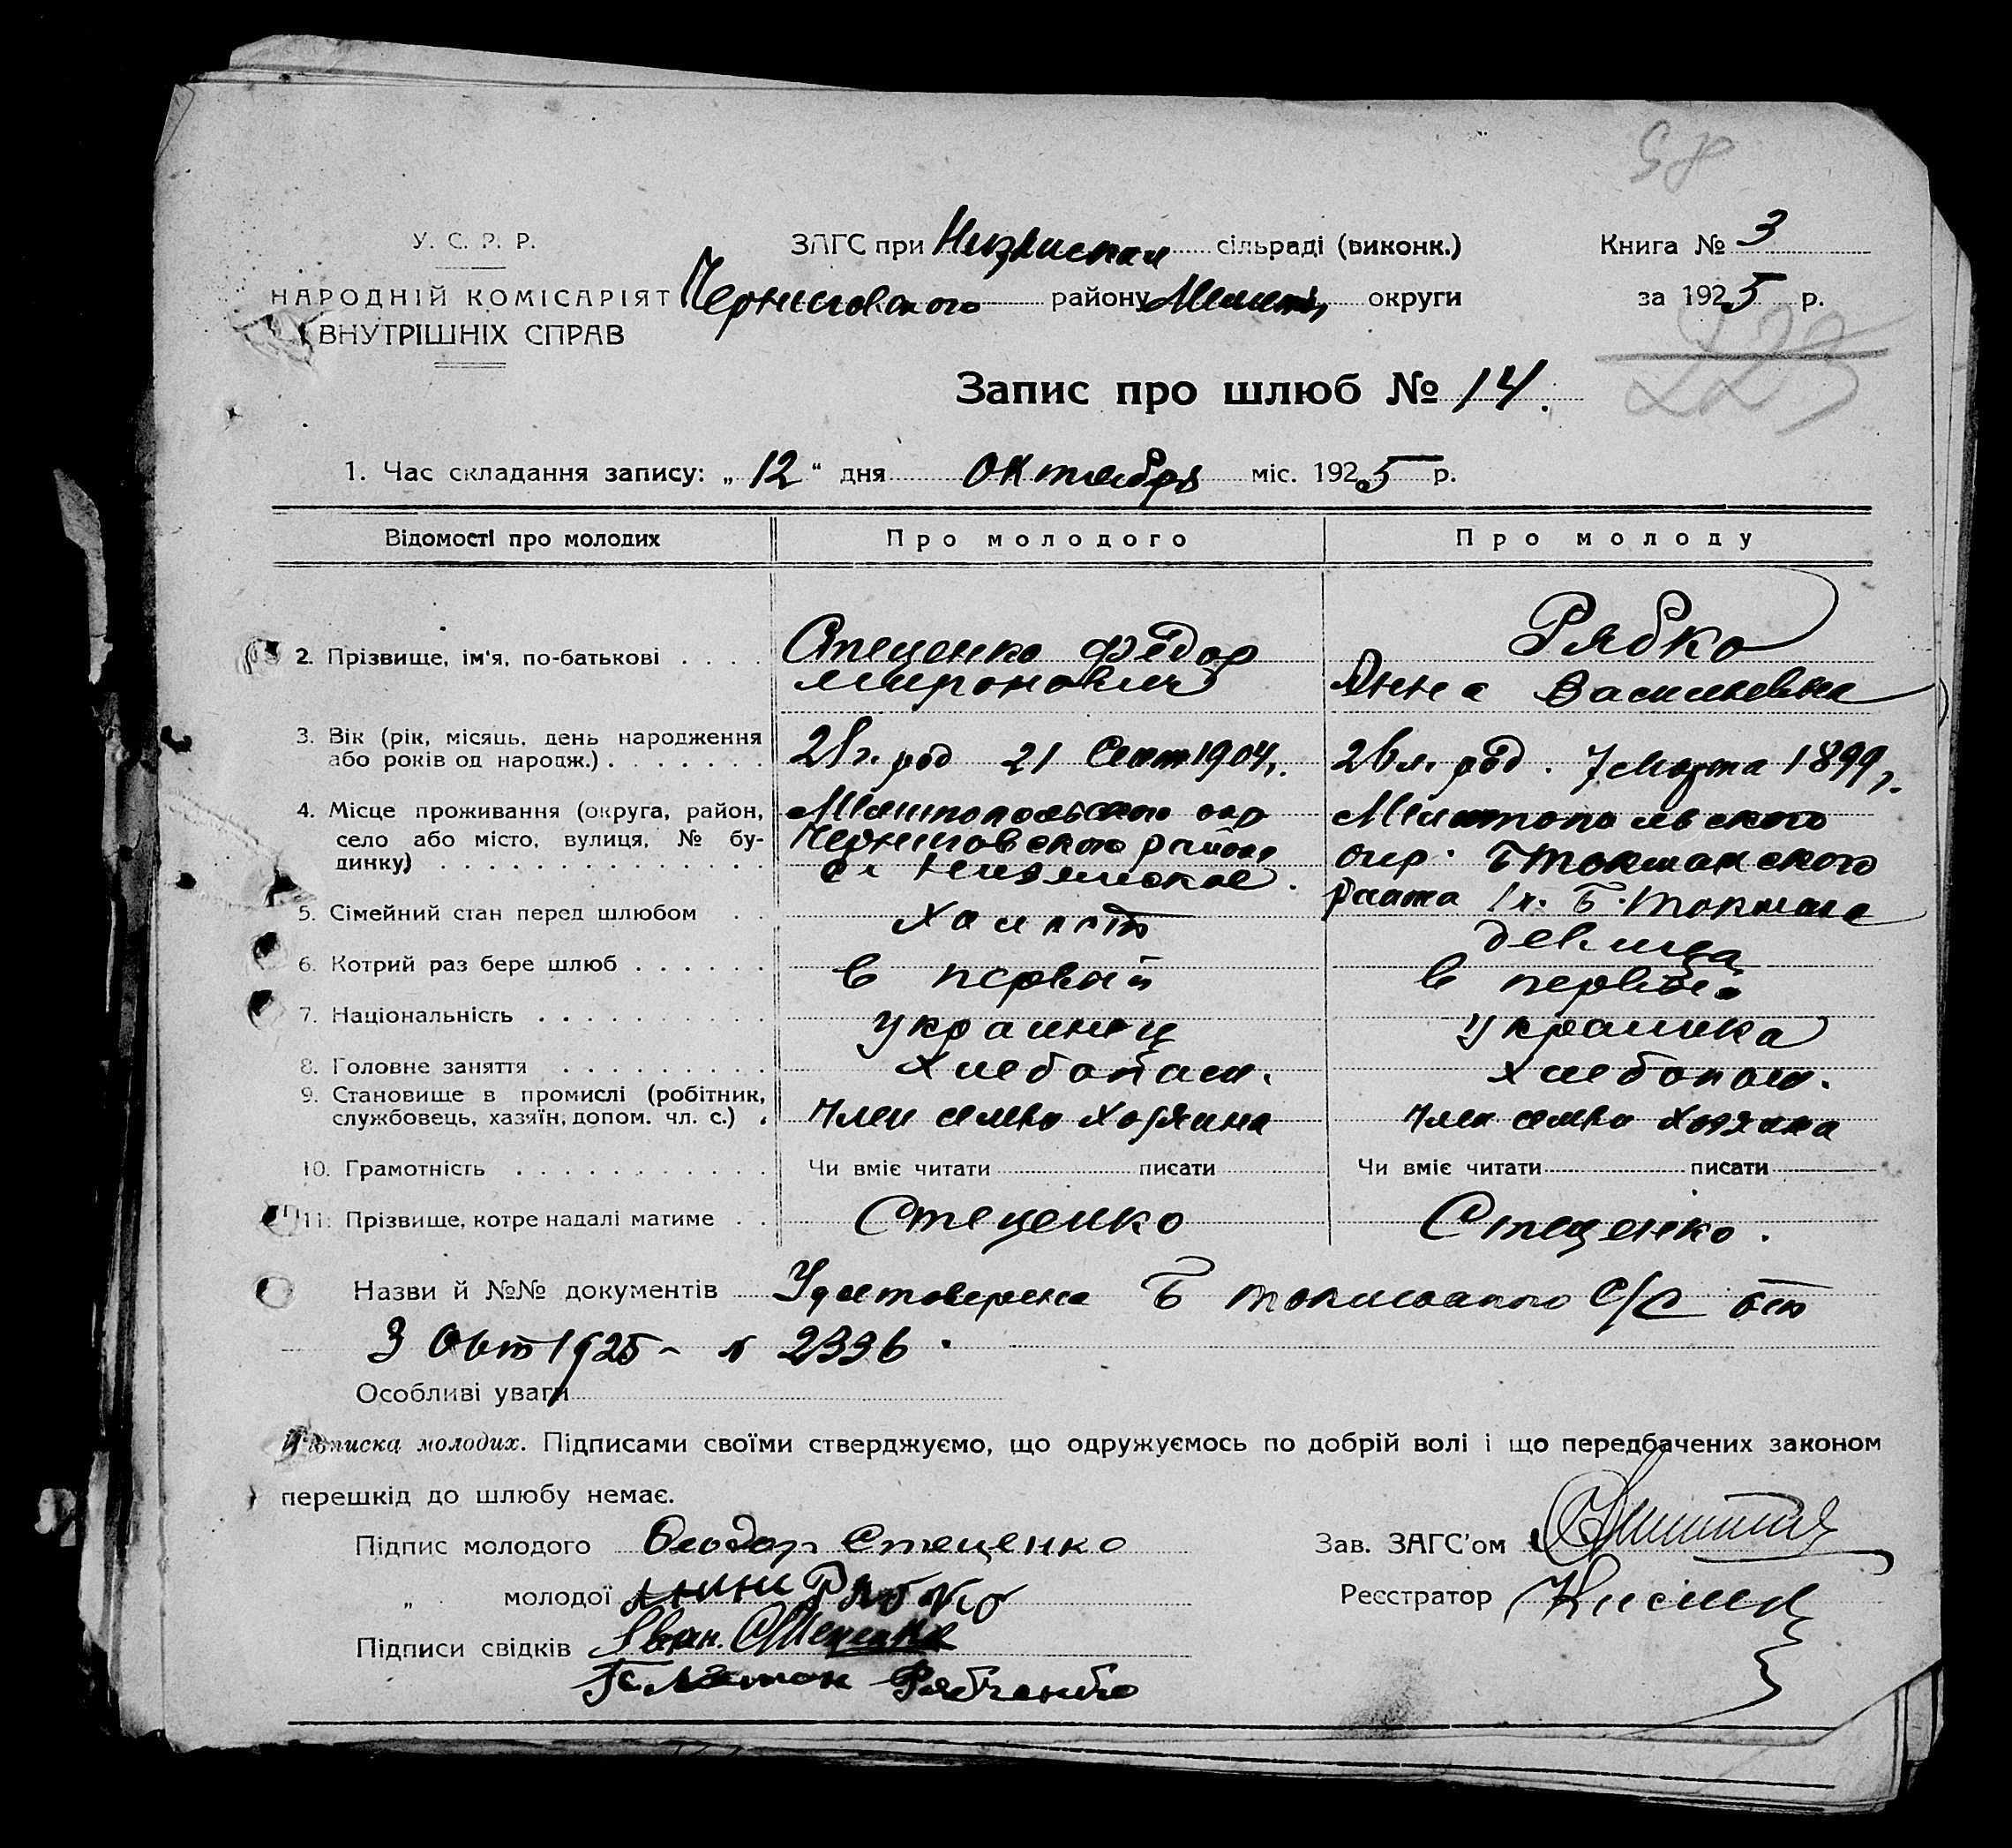 98
У. С. Р. Р.
НАРОДНІЙ КОМІСАРІЯТ
ВНУТРІШНІХ СПРАВ
ЗАГС при Низянская сільраді (виконк.)
Черниговского району Мелит. округи
Книга № 3
за 1925 р.
223
Запис про шлюб № 14.
1. Час складання запису: „12“ дня октября міс. 1925 р.
Відомості про молодих Про молодого Про молоду
2. Прізвище, ім'я, по-батькові . . . .
Стеценко Фёдор
миронович
Рябко
Анна Васильевна
3. Вік (рік, місяць, день народження
або років од народж.) . . . . . . .
21 г. род 21 Сент 1904 г.
26 л. род. 7 марта 1899 г.
4. Місце проживання (округа, район,
село або місто, вулиця, № бу-
динку) . . . . . . . . . . . . .
Мелитопольского окр
Черниговского района
Мелитопольского
окр. Б Токмакского
Б. Токмака
5. Сімейний стан перед шлюбом . .
холост
девица
6. Котрий раз бере шлюб . . . . . .
в первый
в первый
7. Національність . . . . . . . . . .
украинец
украинка
8. Головне заняття . . . . . . . . .
хлебопаш.
хлебопаш.
9. Становище в промислі (робітник,
службовець, хазяїн, допом. чл. с.) .
Член семьи Хозяина
Член семьи Хозяина
10. Грамотність . . . . . . . . . . .
Чи вміє читати писати
Чи вміє читати писати
11. Прізвище, котре надалі матиме . .
Стеценко
Стеценко.
Назви й №№ документів Удостоверена Б Токмакского С/С от
3 Окт 1925 - № 2336.
Особливі уваги
Підписка молодих. Підписами своїми стверджуємо, що одружуємось по добрій волі і що передбачених законом
перешкід до шлюбу немає.
Підпис молодого Феодор Стеценко
„ молодої Анна Рябко
Підписи свідків Иван. Стеценко
Платон Рябченко
Зав. ЗАГС'ом
Реєстратор